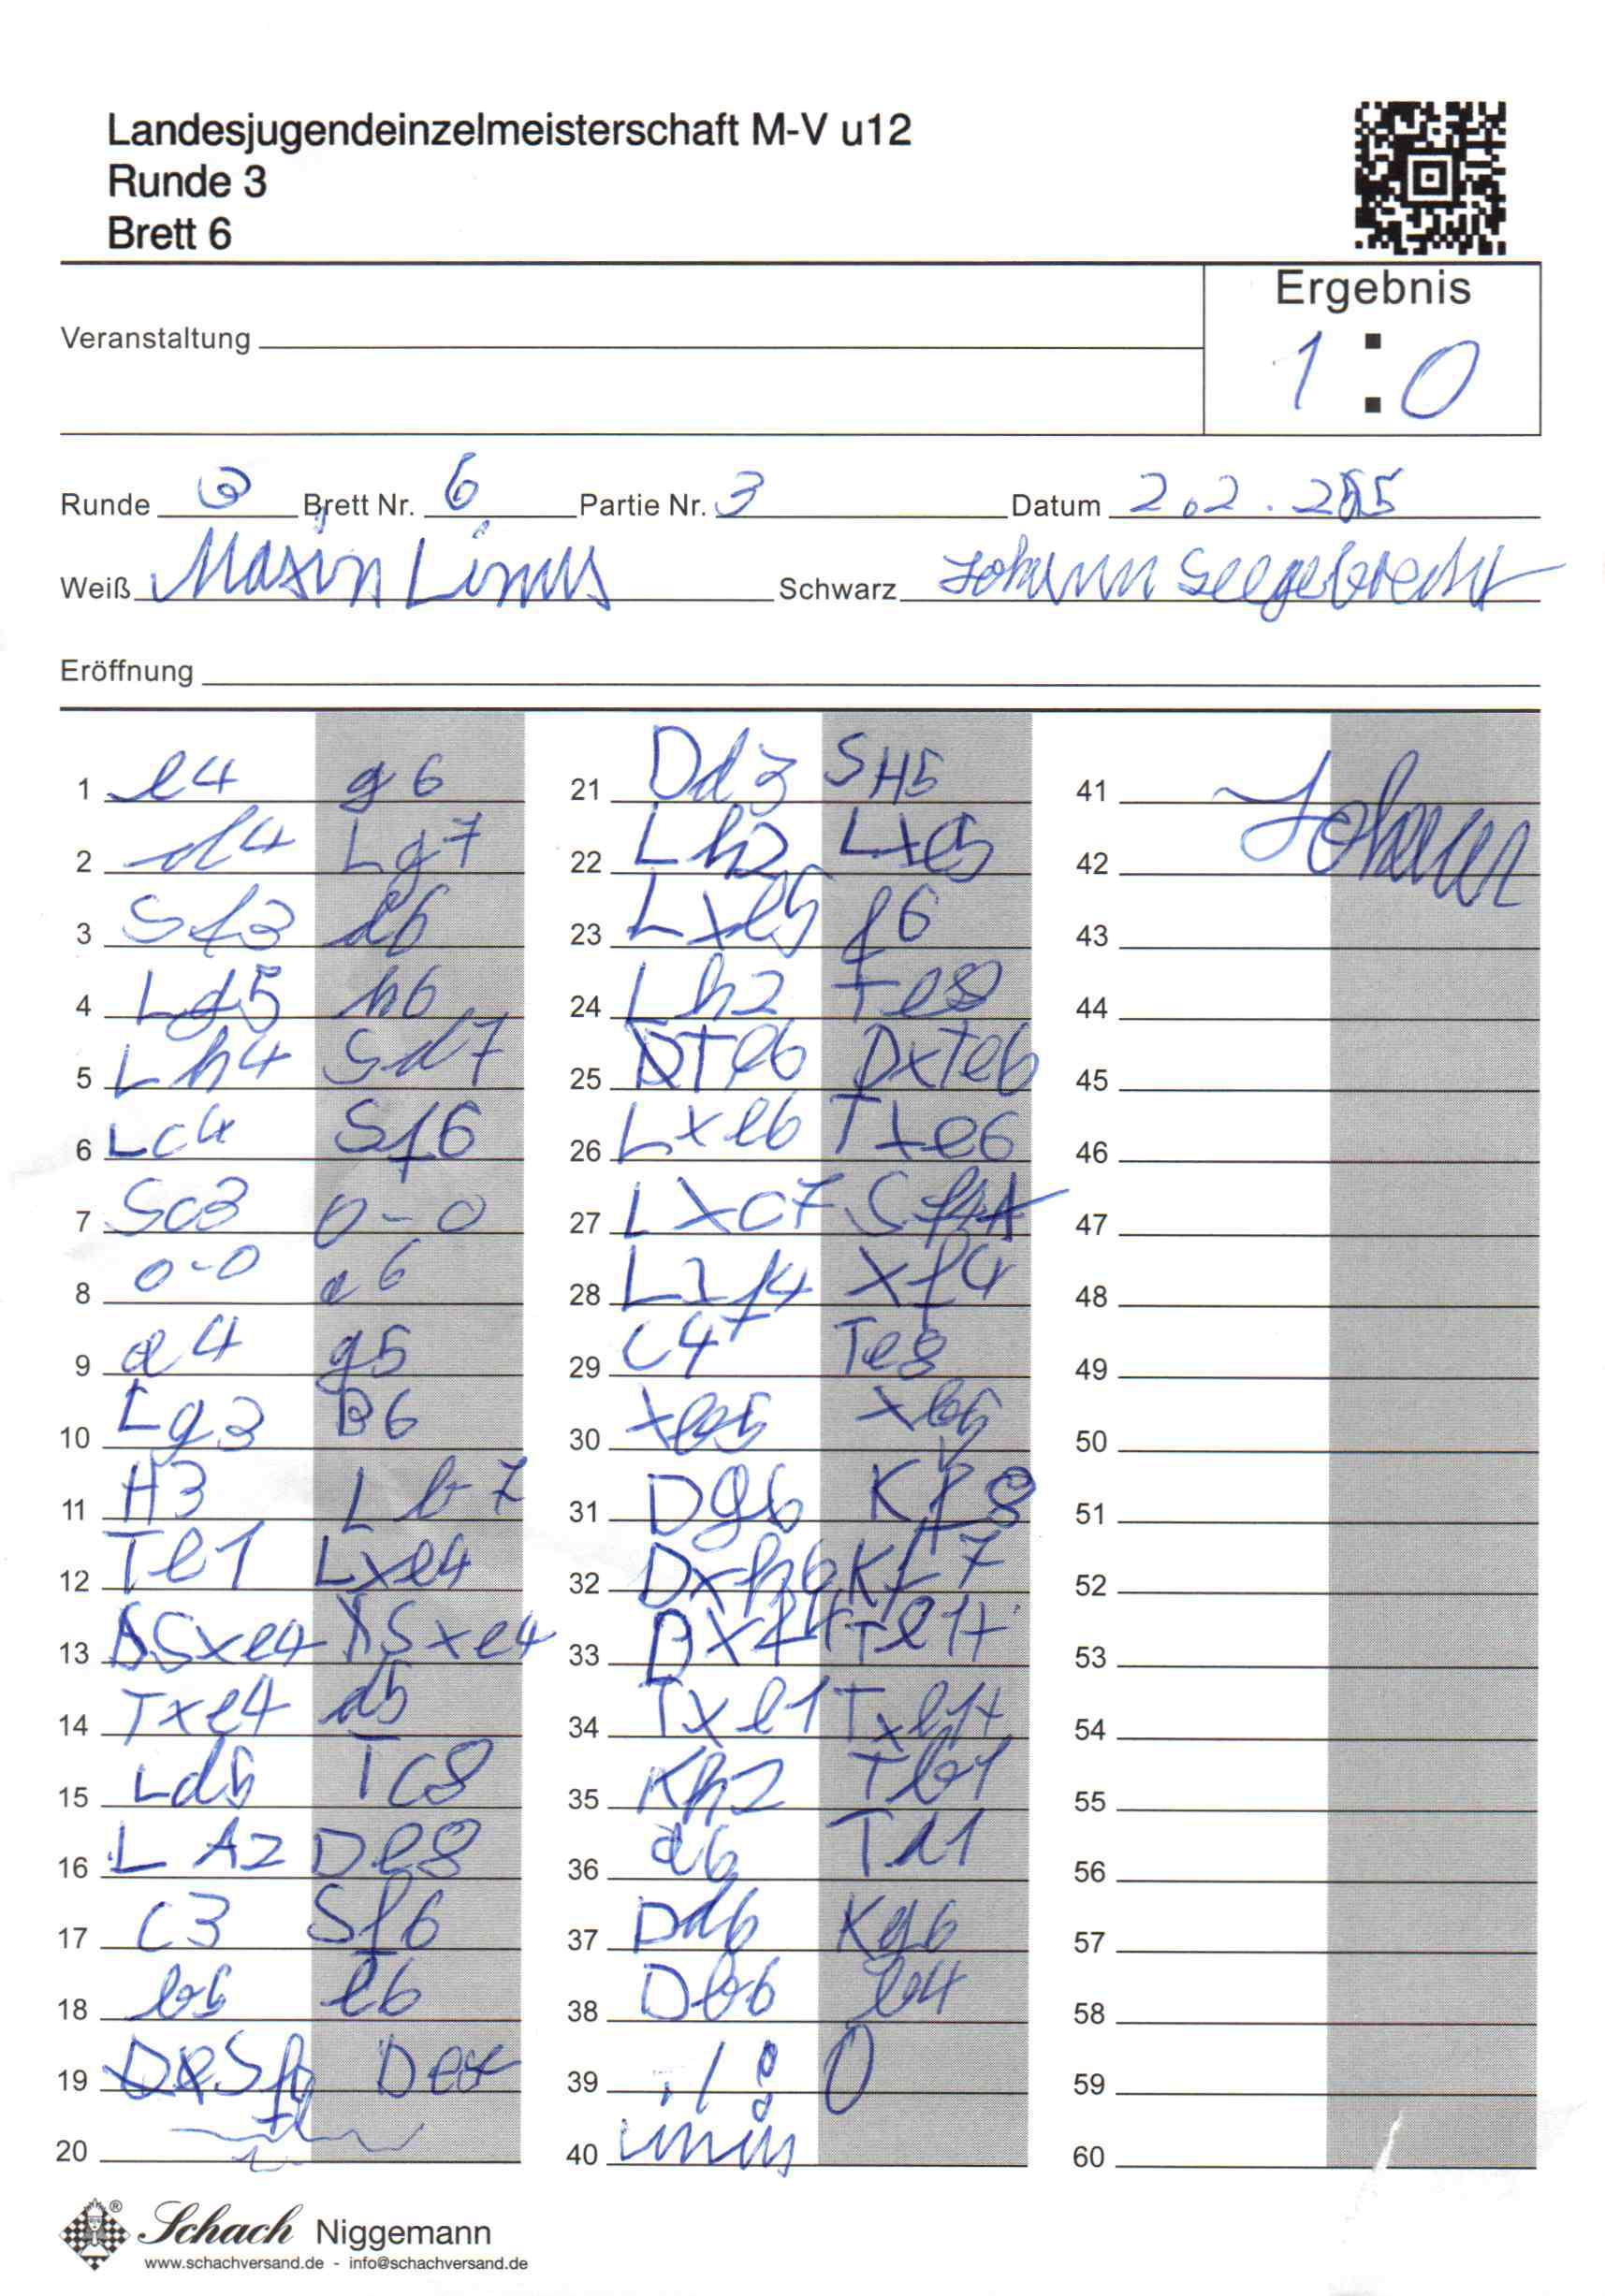 Landesjugendeinzelmeisterschaft M-V u12
Runde 3
Brett 6
Ergebnis
1 : 0
Veranstaltung
Runde 3 Brett Nr. 6 Partie Nr. 3 Datum 2.2.
Weiß Maxin Linus Schwarz Johann Seegebrecht
Eröffnung
1 e4 g6
2 d4 Lg7
3 Sf3 d6
4 Lg5 h6
5 Lh4 Sd7
6 Lc4 Sf6
7 Sc3 0-0
8 0-0 a6
9 a4 g5
10 Lg3 B6
11 H3 Lb7
12 Te1 Lxe4
13 Sxe4 Sxe4
14 Txe4 d5
15 Ld5 Tc8
16 LA2 De8
17 c3 Sf6
18 e6
19
20
21 Dd3 SH5
22 Lh2 Lxe5
23 Lxe5 f6
24 Lh2 Te8
25 Te6 DxTe6
26 Lxe6 Txe6
27 Lxc7 Sf4
28 Lxf4 xf4
29 c4 Te8
30 xb5 xb5
31 Dg6 Kf8
32 Dxh6 Kf7
33 Dxf4 Te1+
34 Txe1 Txe1+
35 Kh2 Tb1
36 Td1
37 Dd6 Kg6
38 Db6 b4
39 1 : 0
40 Linus
41
42 Johann
43
44
45
46
47
48
49
50
51
52
53
54
55
56
57
58
59
60
Schach Niggemann
www.schachversand.de - info@schachversand.de